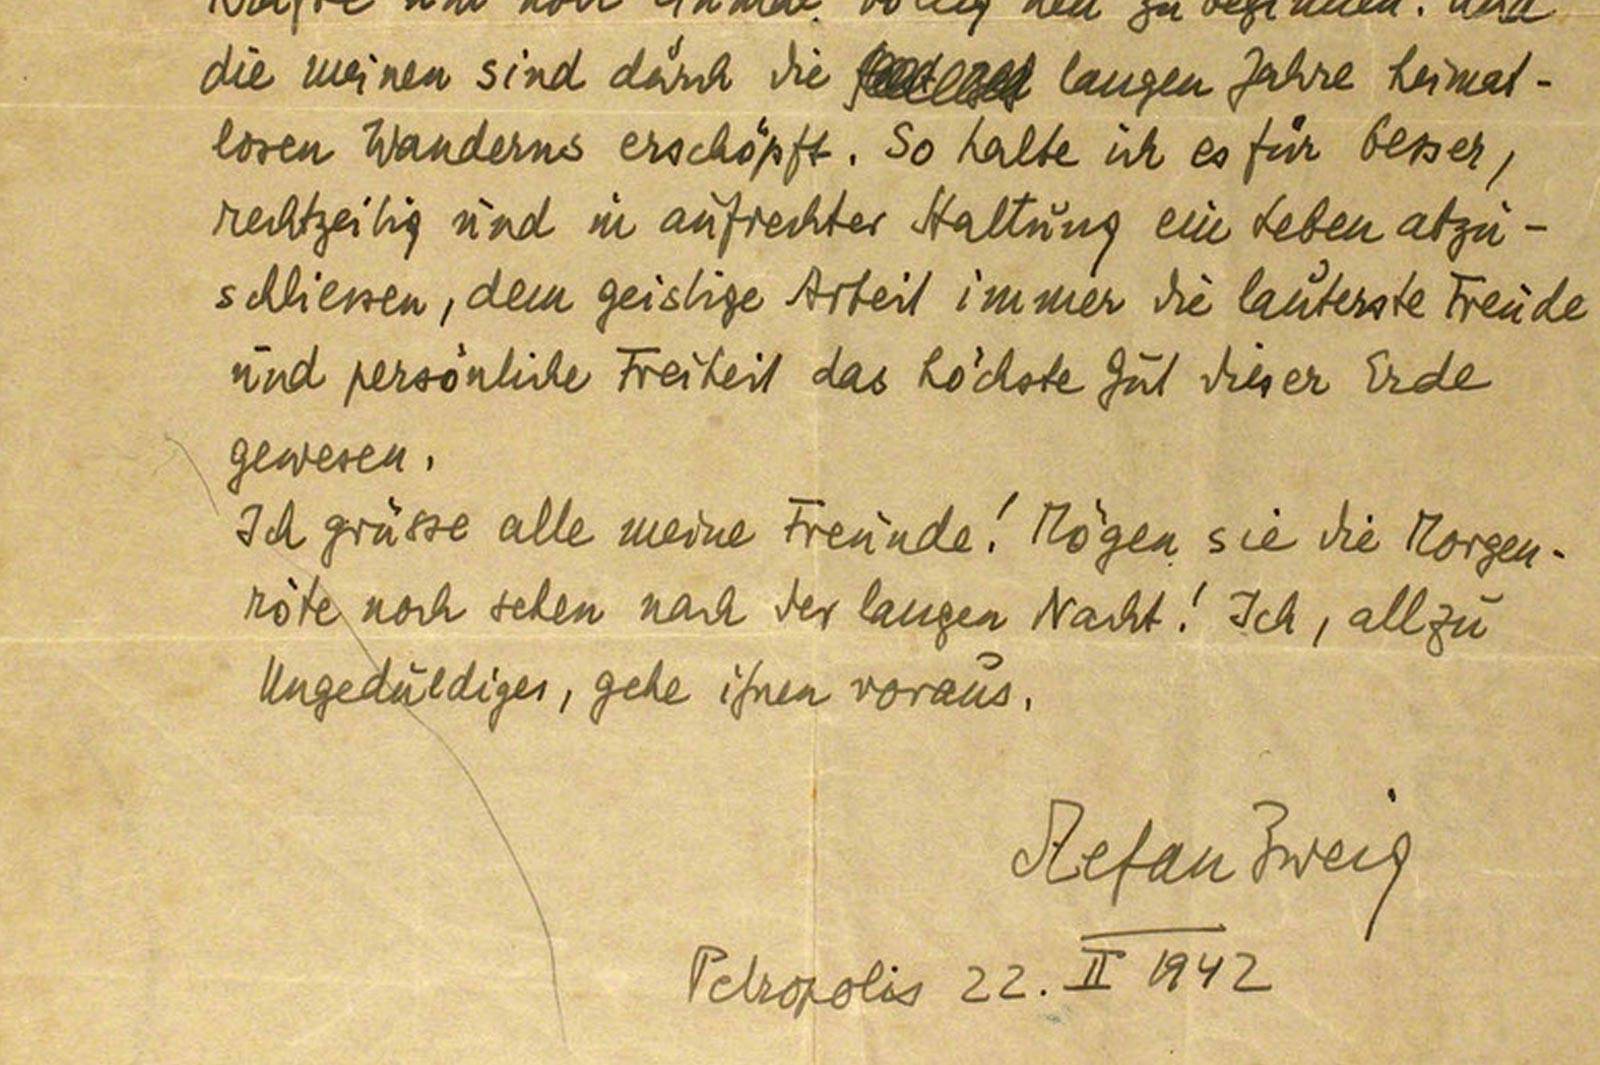 Kräfte um noch einmal völlig neu zu beginnen. Und
die meinen sind durch die langen Jahre heimat-
losen Wanderns erschöpft. So halte ich es für besser,
rechtzeitig und in aufrechter Haltung ein Leben abzu-
schliessen, dem geistige Arbeit immer die lauterste Freude
und persönliche Freiheit das höchste Gut dieser Erde
gewesen.
Ich grüsse alle meine Freunde! Mögen sie die Morgen-
röte noch sehen nach der langen Nacht! Ich, allzu
Ungeduldiger, gehe ihnen voraus.
Stefan Zweig
Petropolis 22. II 1942